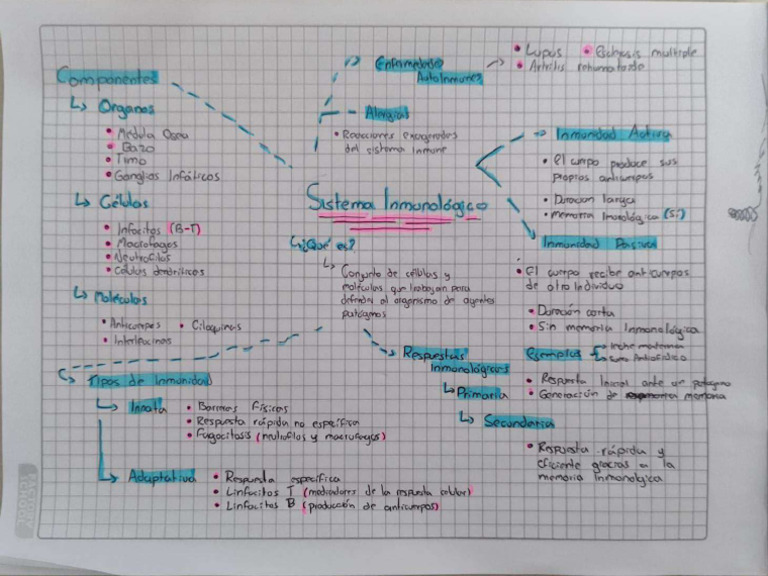 Componentes
↳ Organos
• Medula Osea
• Bazo
• Timo
• Ganglios Infáticos
↳ Células
• Infocitos (B-T)
• Macrofagos
• Neutrofilos
• Células dendriticas
↳ Moléculas
• Anticuerpos • Citoquinas
• Interleocinas
Enfermedades
AutoInmunes
• Lupus • Esclrysis multiple
• Artritis rehumatoide
Alergias
• Reacciones exageradas
del sistema inmune
Sistema Inmunológico
↳ ¿Qué es?
↳ Conjunto de células y
moléculas que trabajan para
defender al organismo de agentes
patógenos
Inmunidad Activa
• El cuerpo produce sus
propios anticuerpos
• Duracion larga
• memorra Inmonológica (Si)
Inmunidad Pasiva
• El cuerpo recibe anticuerpos
de otro Individuo
• Duración corta
• Sin memoria Inmonológica
Ejemplos
leche materna
suero Antiofidico
Respuestas
Inmonológicas
↳ Primaria
• Respuesta Inicial ante un patógeno
• Generación de memoria
↳ Secundaria
• Respuesta rápida y
eficiente gracias a la
memoria Inmonológica
Tipos de Inmunidad
↳ Innata
• Barreras físicas
• Respuesta rápida no específica
• Fagocitosis (neutrofilos y macrofagos)
↳ Adaptativa
• Respuesta específica
• Linfocitos T (mediadores de la respuesta celular)
• Linfocitos B (producción de anticuerpos)